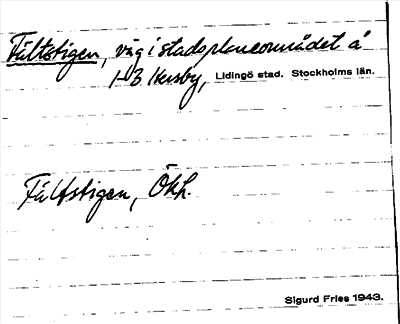 Fältstigen, väg i stadsplaneområdet å
1-3 Hersby, Lidingö stad. Stockholms län.
Fältstigen, Ökk.
Sigurd Fries 1943.